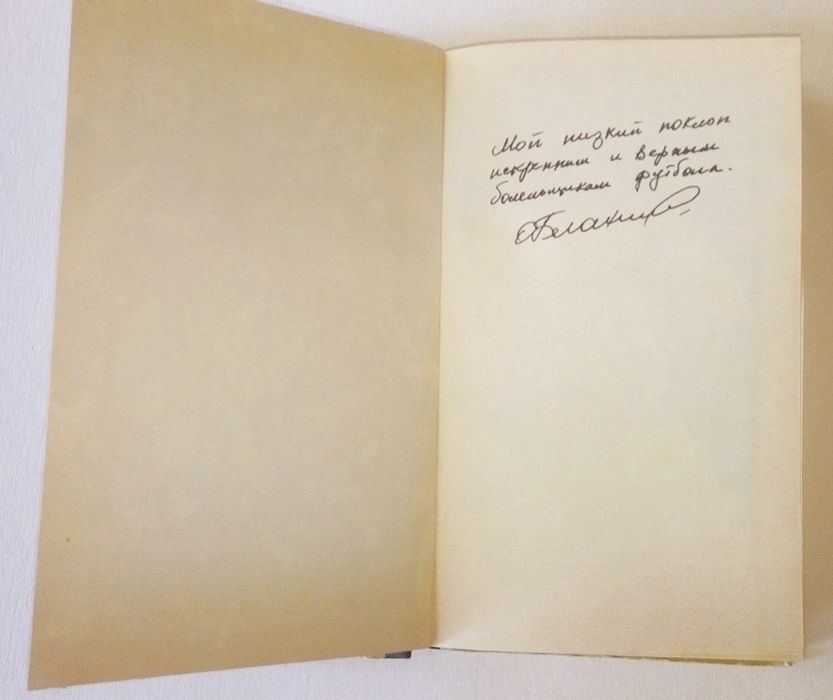 Мой низкий поклон
искренним и верным
болельщикам футбола.
ОБлохин